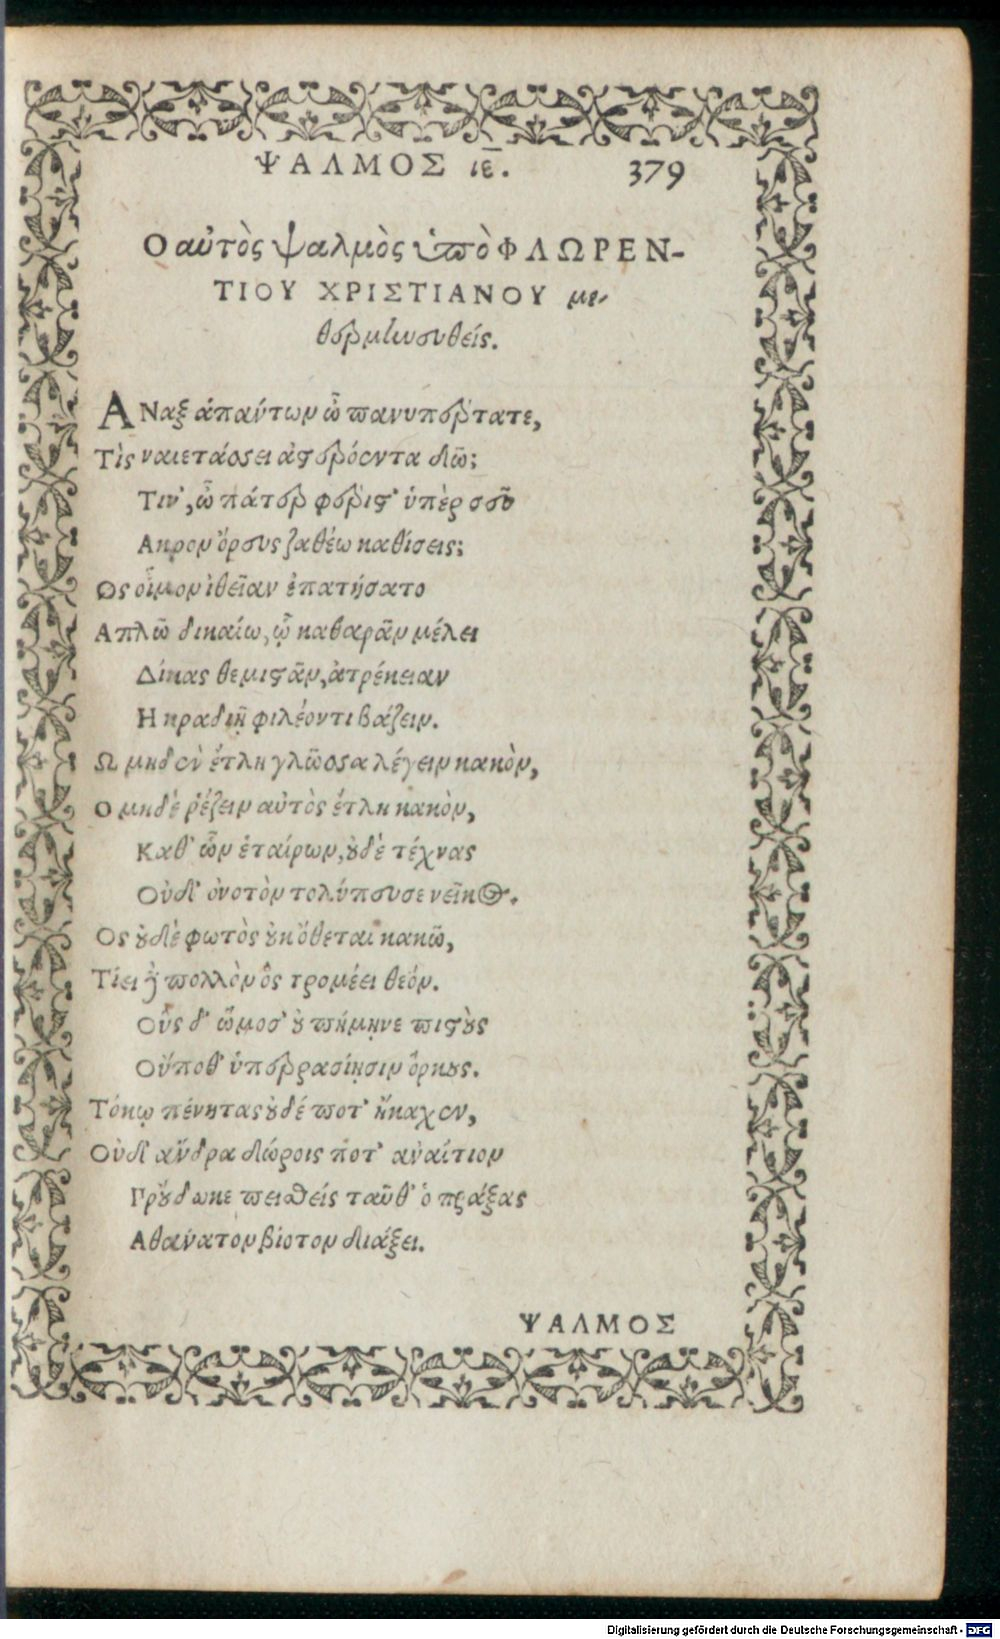 ΨΑΛΜΟΣ ιε. 379
Ο αὐτὸς ψαλμὸς ὑπὸ ΦΛΩΡΕΝ-
ΤΙΟΥ ΧΡΙΣΤΙΑΝΟΥ με-
θερμηνευθείς.
ΑΝαξ ἁπάντων ὦ πανυπέρτατε,
Τὶς ναιετάσσει ἀστερόεντα δῶ;
Τιν', ὦ πάτερ φέριστ' ὑπὲρ σσῦ
Ακρον ὄρευς ζαθέω καθίσεις;
Ος οἶμον ἰθεῖαν ἐπατήσατο
Απλῶ δικαίω, ᾧ καθαρᾶν μέλει
Δίκας θεμιστᾶν, ἀτρέκειαν
Η κραδίῃ φιλέοντι βάζειν.
Ω μηδὲν ἔτλη γλῶσσα λέγειν κακὸν,
Ο μηδὲ ῥέζειν αὐτὸς ἔτλη κακὸν,
Καθ' ὧν ἑταίρων, οὐδὲ τέχνας
Οὐδ' ὀνοτὸν τολύπευσε νεῖκος.
Ος οὐδὲ φωτὸς οὐκ ὄθεται κακῶ,
Τίει δὲ πολλὸν ὃς τρομέει θεόν.
Οὓς δ' ὤμοσ' οὐ πήμῃνε πιστοὺς
Οὔποθ' ὑπερβασίῃσιν ὅρκους.
Τόκῳ πένητας οὐδέ ποτ' ἤκαχεν,
Οὐδ' ἄνδρα δώροις ποτ' ἀναίτιον
Προύδωκε πειθείς ταῦθ' ὁ πράξας
Αθάνατον βίοτον διάξει.
ΨΑΛΜΟΣ
Digitalisierung gefördert durch die Deutsche Forschungsgemeinschaft - DFG